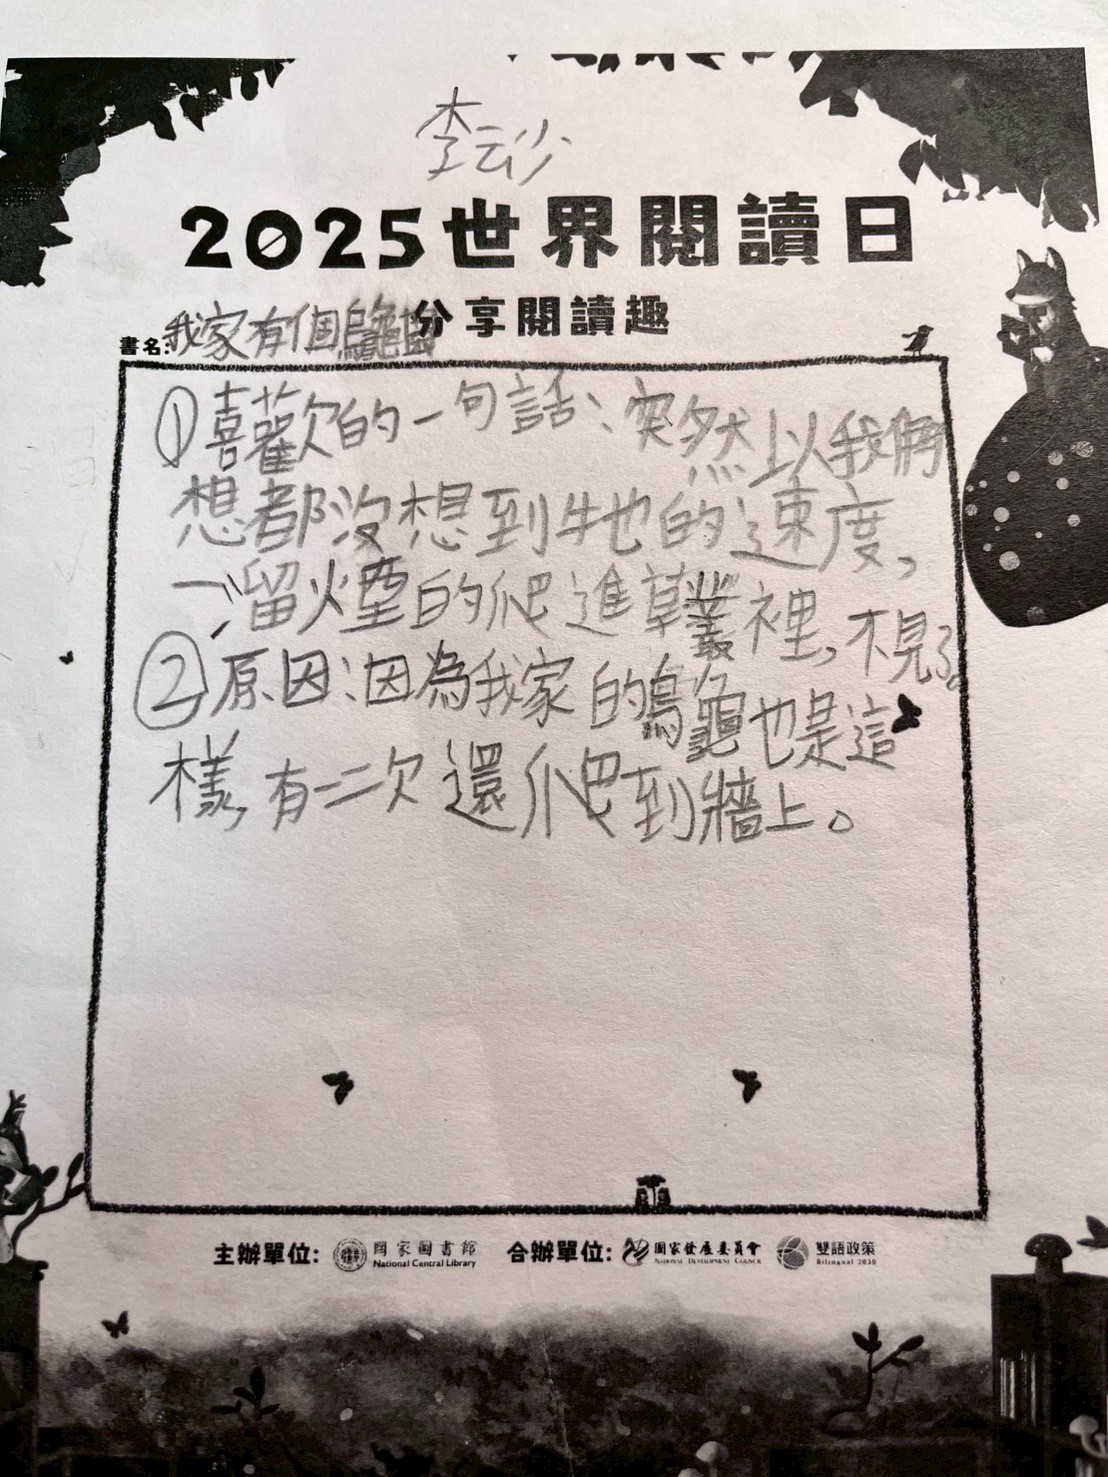 李云少
2025世界閱讀日
分享閱讀趣
書名:我家有個烏龜園
①喜歡的一句話:突然以我們
想都沒想到牠的速度,
一溜火煙的爬進草叢裡,不見了。
②原因:因為我家的烏龜也是這
樣,有一二次還爬到牆上。
主辦單位: 國家圖書館 合辦單位: 國家發展委員會 雙語政策
National Central Library NATIONAL DEVELOPMENT COUNCIL Bilingual 2030